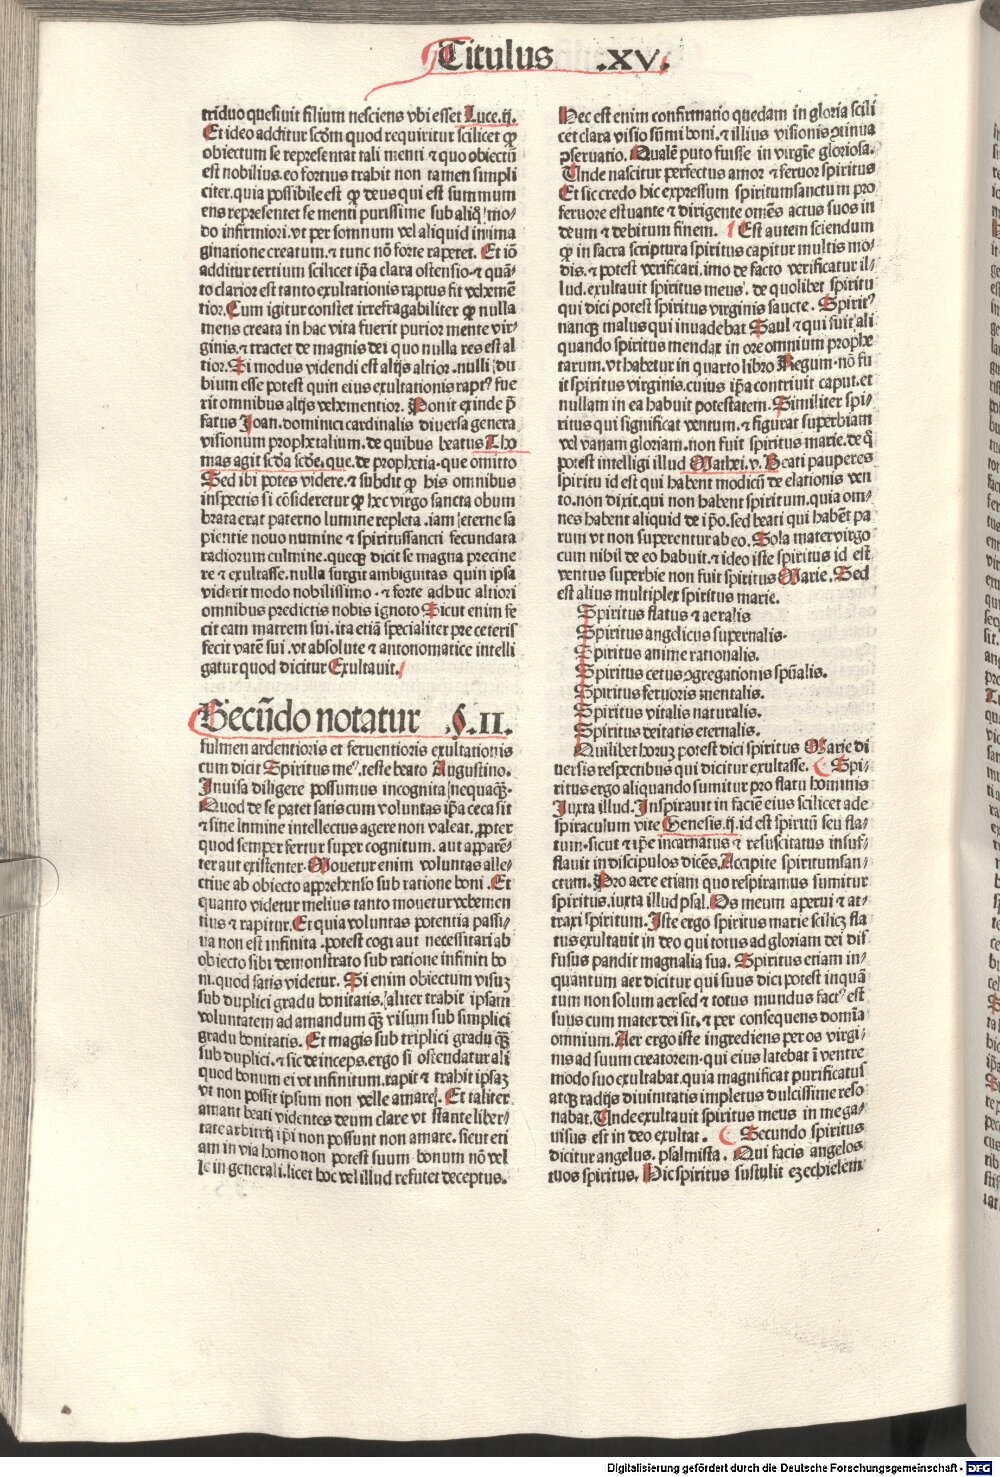 Titulus .XV.
triduo quesiuit filium nesciens vbi esset Luce.ij.
Et ideo additur scdm quod requiritur scilicet ꝙ
obiectum se representat tali menti ⁊ quo obiectū
est nobilius.eo fortius trahit non tamen simpli
citer.quia possibile est ꝙ deus qui est summum
ens representet se menti purissime sub aliq̄ mo⸗
do infirmiori.vt per somnum vel aliquid in ima
ginatione creatum.⁊ tunc nō forte raperet. Et iō
additur tertium scilicet ip̄a clara ostensio.⁊ quā⸗
to clarior est tanto exultationis raptus fit vehemē
tior.Cum igitur constet irrefragabiliter ꝙ nulla
mens creata in hac vita fuerit purior mente vir⸗
ginis.⁊ tractet de magnis dei quo nulla res est al
tior.Si modus videndi est alijs altior.nulli du
bium esse potest quin eius exultationis rapt⁹ fue
rit omnibus alijs vehementior. Ponit exinde p̄
fatus Joan.dominici cardinalis diuersa genera
visionum prophetalium.de quibus beatus Tho
mas agit scd̄a scd̄e.que.de prophetia.que omitto
Sed ibi potes videre.⁊ subdit ꝙ his omnibus
inspectis si cōsideretur ꝙ hec virgo sancta obum
brata erat paterno lumine repleta.iam eterne sa
pientie nouo numine ⁊ spiritussancti fecundata
radiorum culmine.queqꝫ dicit se magna precine
re ⁊ exultasse.nulla surgit ambiguitas quin ipsa
viderit modo nobilissimo.⁊ forte adhuc altiori
omnibus predictis nobis ignoto Sicut enim fe
cit eam matrem sui.ita etiā specialiter pre ceteris
fecit vatē sui.vt absolute ⁊ antonomatice intelli
gatur quod dicitur Exultauit.
Secūdo notatur .§.II.
fulmen ardentioris et feruentioris exultationis
cum dicit Spiritus me⁹.teste beato Augustino.
Inuisa diligere possumus incognita nequaqꝫ.
Quod de se patet satis cum voluntas ip̄a ceca sit
⁊ sine lumine intellectus agere non valeat. ꝓpter
quod semper fertur super cognitum. aut apparē⸗
ter aut existenter. Mouetur enim voluntas affe⸗
ctiue ab obiecto apprehenso sub ratione boni. Et
quanto videtur melius tanto mouetur vehemen
tius ⁊ rapitur.Et quia voluntas potentia passi⸗
ua non est infinita.potest cogi aut necessitari ab
obiecto sibi demonstrato sub ratione infiniti bo
ni.quod satis videtur. Si enim obiectum visuꝫ
sub duplici gradu bonitatis.aliter trahit ipsam
voluntatem ad amandum qꝫ visum sub simplici
gradu bonitatis. Et magis sub triplici gradu qꝫ
sub duplici.⁊ sic deinceps.ergo si ostendatur ali
quod bonum ei vt infinitum.rapit ⁊ trahit ipsaꝫ
vt non possit ipsum non velle amare. Et taliter
amant beati videntes deum clare vt stante liber⸗
tate arbitrij ip̄i non possunt non amare.sicut eti
am in via homo non potest suum bonum nō vel
le in generali.licet hoc vel illud refutet deceptus.
Hec est enim confirmatio quedam in gloria scili
cet clara visio sūmi boni.⁊ illius visionis ↄtinua
ↄseruatio. Qualē puto fuisse in virgīe gloriosa.
Unde nascitur perfectus amor ⁊ feruor spiritus
Et sic credo hic expressum spiritumsanctum pro
feruore estuante ⁊ dirigente omēs actus suos in
deum ⁊ debitum finem. Est autem sciendum
ꝙ in sacra scriptura spiritus capitur multis mo⸗
dis.⁊ potest verificari.imo de facto verificatur il⸗
lud.exultauit spiritus meus. de quolibet spiritu
qui dici potest spiritus virginis sancte. Spirit⁹
nanqꝫ malus qui inuadebat Saul ⁊ qui fuit ali
quando spiritus mendax in ore omnium prophe
tarum.vt habetur in quarto libro Regum.nō fu
it spiritus virginis.cuius ip̄a contriuit caput.et
nullam in ea habuit potestatem.Similiter spi⸗
ritus qui significat ventum.⁊ figurat superbiam
vel vanam gloriam.non fuit spiritus marie.de q̄
potest intelligi illud Mathei.v.Beati pauperes
spiritu id est qui habent modicū de elationis ven
to.non dixit.qui non habent spiritum.quia om⸗
nes habent aliquid de ip̄o.sed beati qui habēt pa
rum vt non superentur ab eo.Sola mater virgo
cum nihil de eo habuit.⁊ ideo iste spiritus id est
ventus superbie non fuit spiritus Marie. Sed
est alius multiplex spiritus marie.
Spiritus flatus ⁊ aeralis
Spiritus angelicus supernalis.
Spiritus anime rationalis.
Spiritus cetus ↄgregationis spūalis.
Spiritus feruoris mentalis.
Spiritus vitalis naturalis.
Spiritus deitatis eternalis.
Quilibet horuꝫ potest dici spiritus Marie di
uersis respectibus qui dicitur exultasse. Spi⸗
ritus ergo aliquando sumitur pro flatu hominis
Juxta illud.Inspirauit in faciē eius scilicet ade
spiraculum vite Genesis.ij.id est spiritū seu fla⸗
tum.sicut ⁊ ip̄e incarnatus ⁊ resuscitatus insuf⸗
flauit in discipulos dicēs.Accipite spiritumsan⸗
ctum.Pro aere etiam quo respiramus sumitur
spiritus.iuxta illud psal.Os meum aperui ⁊ at⸗
traxi spiritum.Iste ergo spiritus marie scilicꝫ fla
tus exultauit in deo qui totus ad gloriam dei dif
fusus pandit magnalia sua. Spiritus etiam in⸗
quantum aer dicitur qui suus dici potest inquā
tum non solum aer sed ⁊ totus mundus fact⁹ est
suus cum mater dei sit.⁊ per consequens domīa
omnium.Aer ergo iste ingrediens per os virgi⸗
nis ad suum creatorem.qui eius latebat ī ventre
modo suo exultabat.quia magnificat purificatus
atqꝫ radijs diuinitatis impletus dulcissime reso
nabat.Unde exultauit spiritus meus in mega⸗
uisus est in deo exultat. Secundo spiritus
dicitur angelus. psalmista. Qui facis angelos
tuos spiritus. Hic spiritus sustulit ezechielem
Digitalisierung gefördert durch die Deutsche Forschungsgemeinschaft - DFG